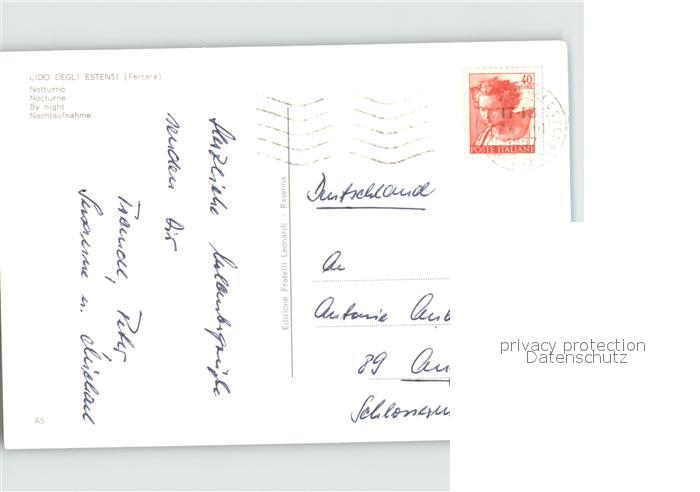 LIDO DEGLI ESTENSI (Ferrara)
Notturno
Nocturne
By night
Nachtaufnahme
Herzliche Urlaubsgrüße
senden Dir
Traudl, Peter
Susanne u. Michael
AS
Edizione Fratelli Leonardi - Ravenna
40
LIRE
POSTE ITALIANE
17-18
Deutschland
An
Antonie
89
Schlosserm
privacy protection
Datenschutz